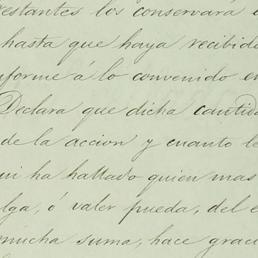 estantes los conservará e
hasta que haya recibido
nforme á lo convenido en
Declara que dicha cantida
de la accion y cuanto le
ui ha hallado quien mas
lga, ó valer pueda, del e
mucha suma, hace graci